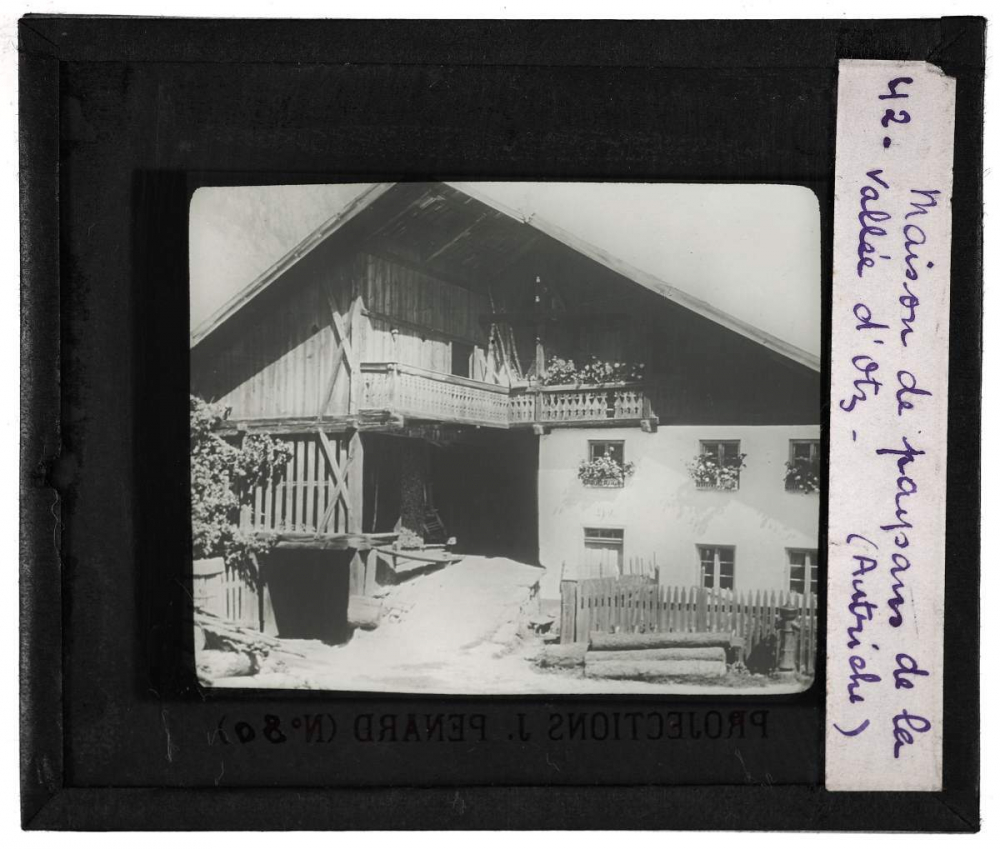 42. Maison de paysans de la
vallée d'Otz -
(Autriche)
PROJECTIONS J. PENARD (N° 80)